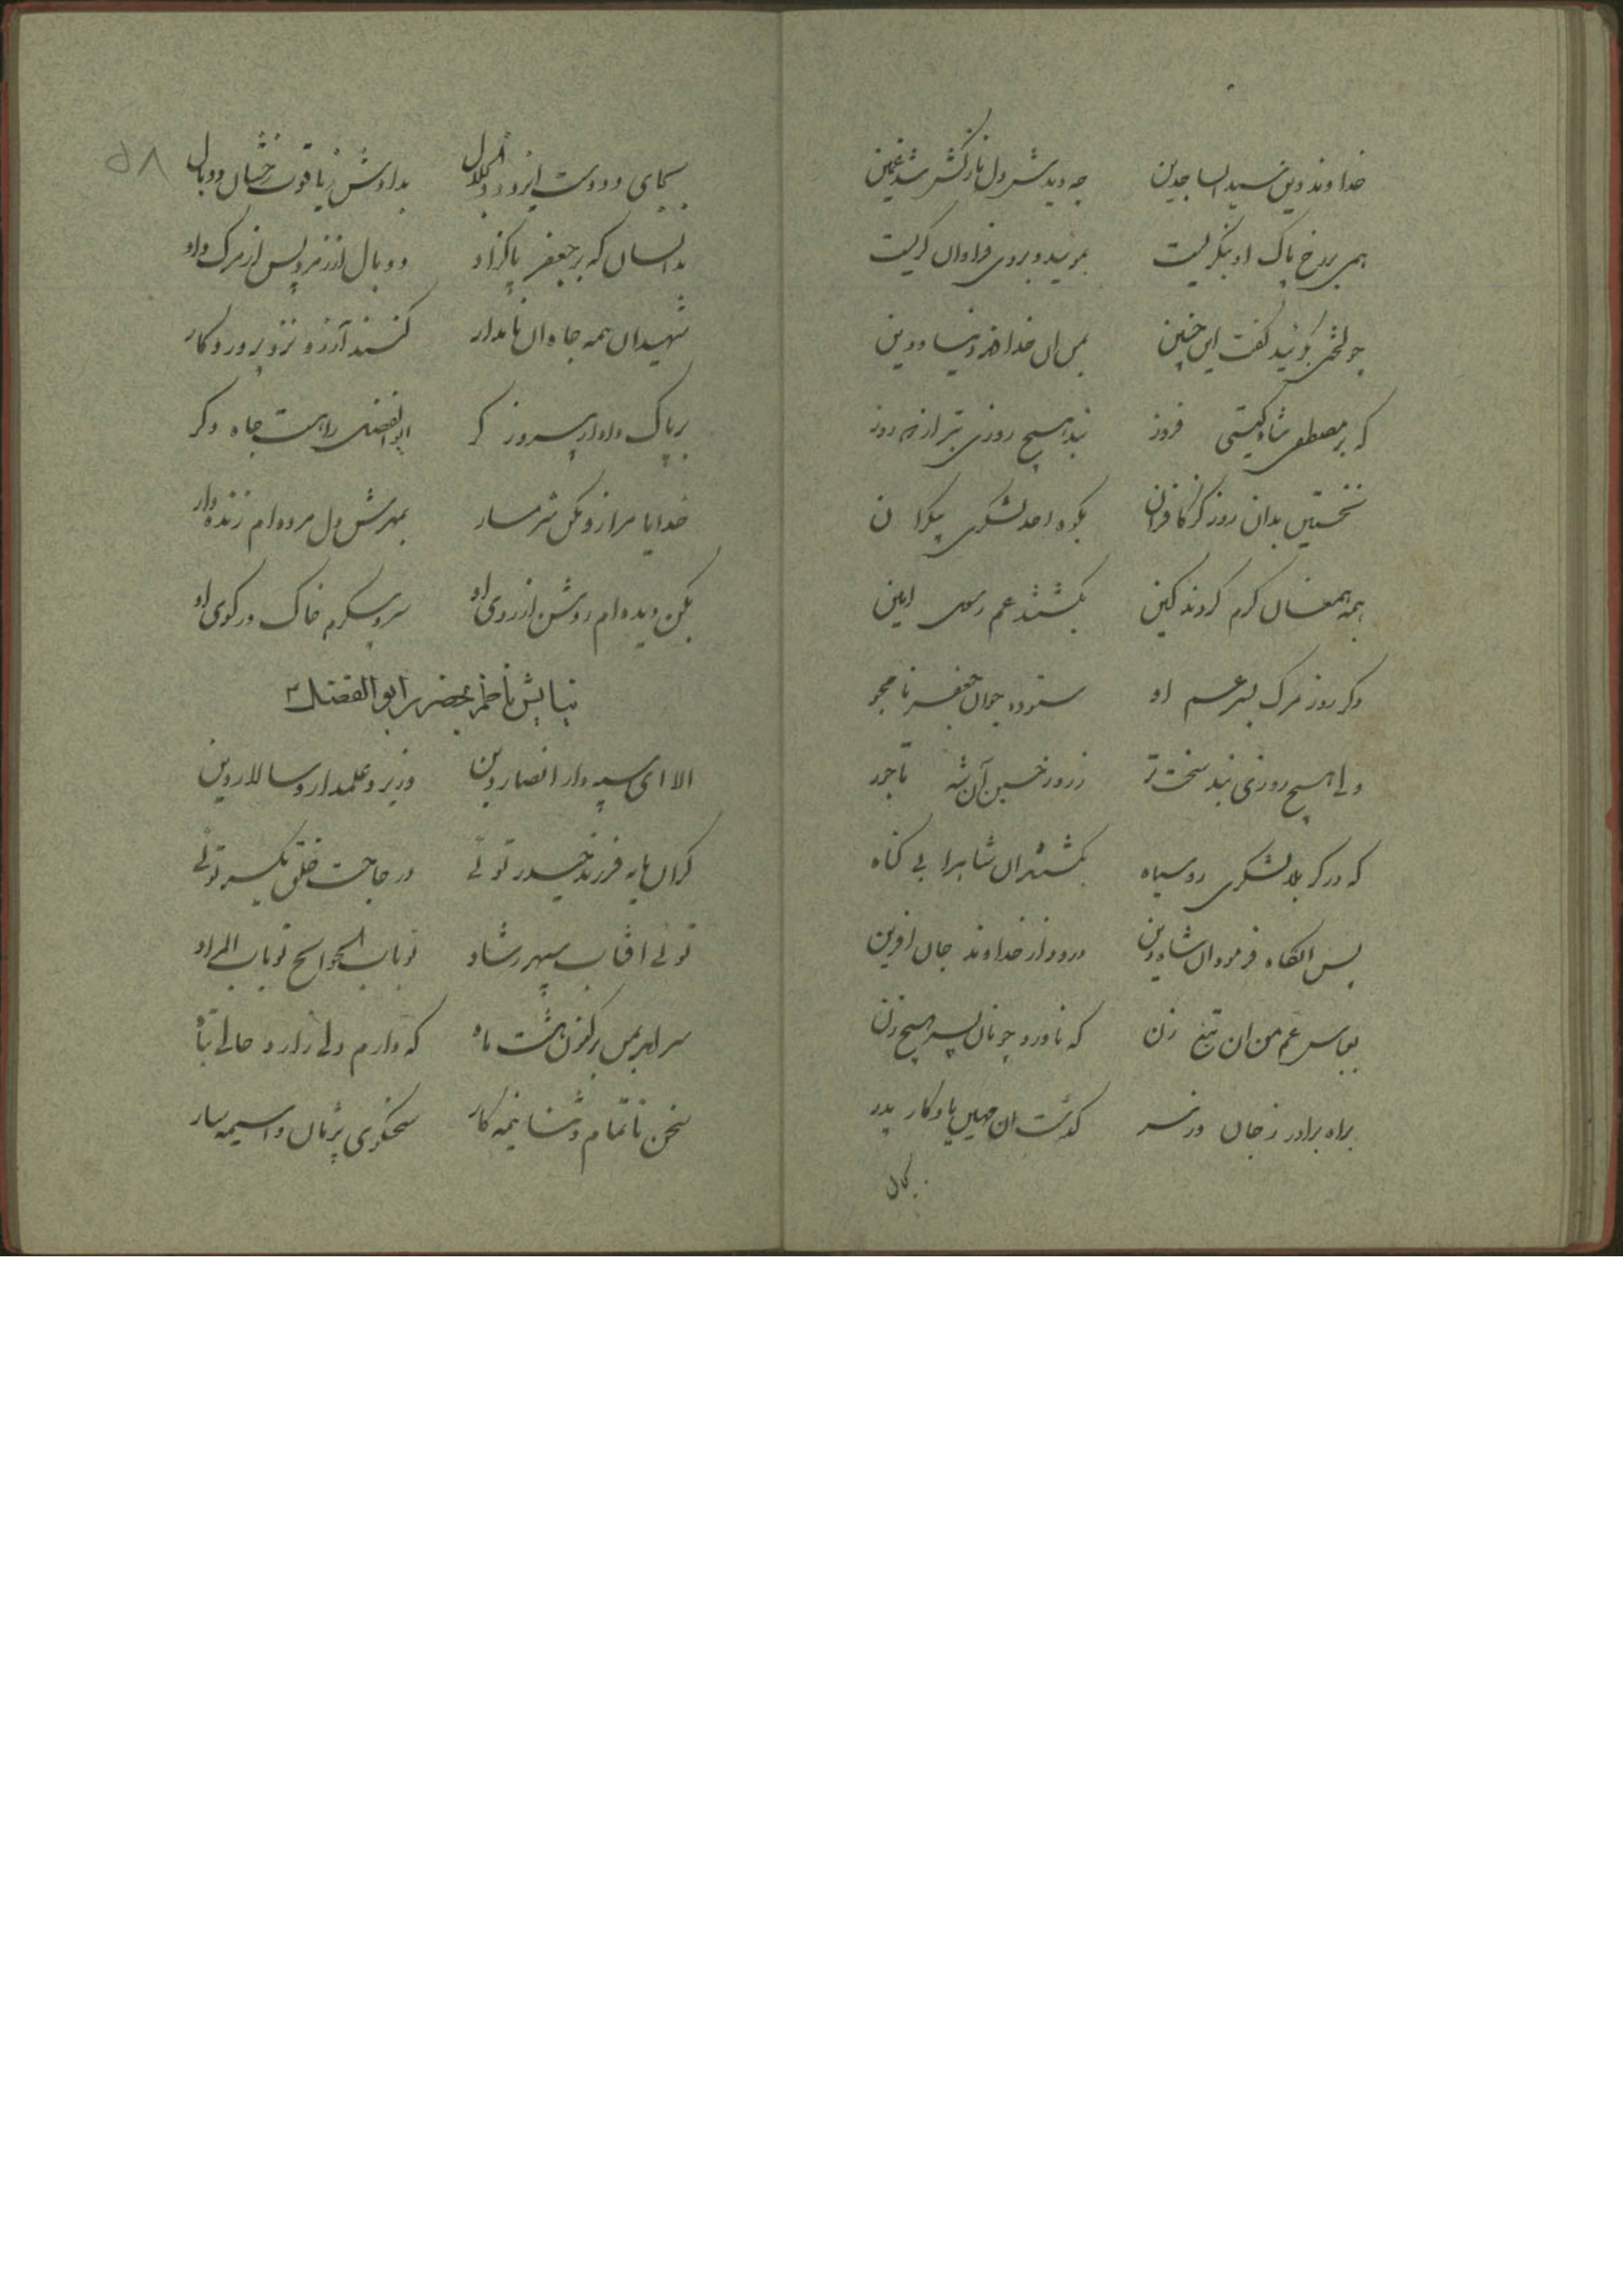 خداوند دین سید الساجدین چه دیدش دل نازکش شد غمین
همی بر رخ پاک او بنگریست بموئید و بر وی فراوان گریست
چو لختی بموئید گفت این چنین بمن آن خداوند دنیا و دین
که بر مصطفی شاه گیتی فروز نبد هیچ روزی بتر از دو روز
نخستین بدان روز کز کافران بکوه احد لشکری بیکران
همه همعنان گرم کردند کین بکشتند عم رسول امین
دگر روز مرگ پسر عم او ستوده جوان جعفر نامجو
ولی هیچ روزی نبد سخت تر ز روز حسین آن شه تاجور
که در کربلا لشکری روسیاه بکشتند آن شاه را بی گناه
پس آنگاه فرمود آن شاه دین درود از خداوند جان آفرین
بعباس عم من آن تیغ زن که ناورد چونان پسر هیچ زن
براه برادر ز جان و ز سر گذشت آن مهین یادگار پدر
بجای
بجای دو دست ایزد ذوالجلال بدادش ز یاقوت رخشان دو بال
بدانسان که بر جعفر پاکزاد دو بال از زمرد پس از مرگ داد
شهیدان همه جاه آن نامدار کنند آرزو نزد پروردگار
بر پاک دادار پیروزگر ابوالفضل راهست جاه دگر
خدایا مرا زو مکن شرمسار بمهرش دل مرده ام زنده دار
بکن دیده ام روشن از روی او سر و پیکرم خاک در کوی او
نیایش ناظم بحضرت ابوالفضل ع
الا ای سپهدار انصار دین وزیر و علمدار و سالار دین
گران مایه فرزند حیدر توئی در حاجت خلق یکسر توئی
توئی آفتاب سپهر رشاد تو باب الحوائج تو باب المراد
سرا بر من برکنون هشت ماه که دارم دلی زار و حالی تباه
سخن ناتمام و ثنا نیمه کار سخنگوی پژمان و آسیمه سار
۵۸